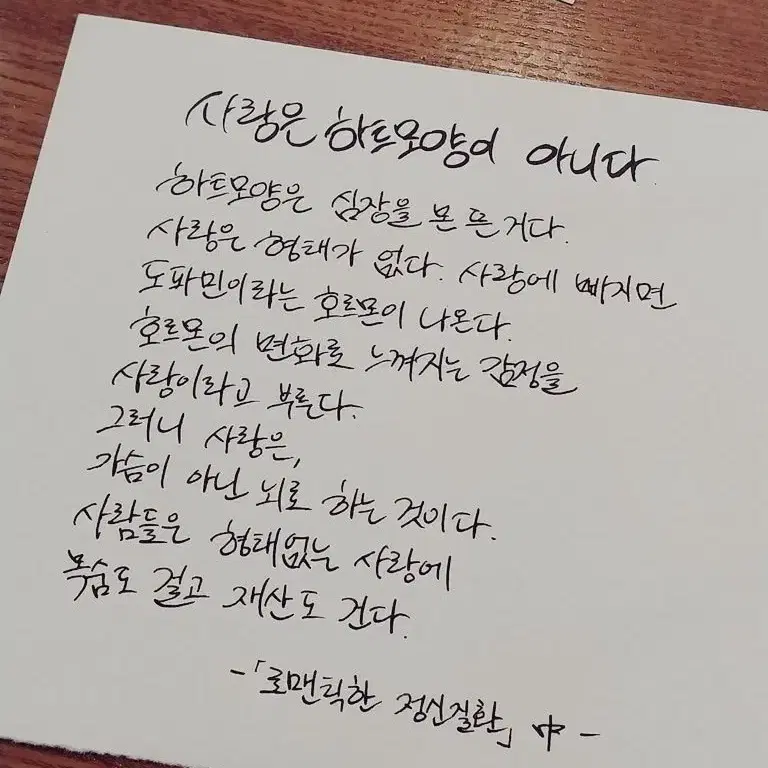 사랑은 하트모양이 아니다
하트모양은 심장을 본 뜬 거다.
사랑은 형태가 없다. 사랑에 빠지면
도파민이라는 호르몬이 나온다.
호르몬의 변화로 느껴지는 감정을
사랑이라고 부른다.
그러니 사랑은,
가슴이 아닌 뇌로 하는 것이다.
사람들은 형태없는 사랑에
목숨도 걸고 재산도 건다.
-「로맨틱한 정신질환」中-